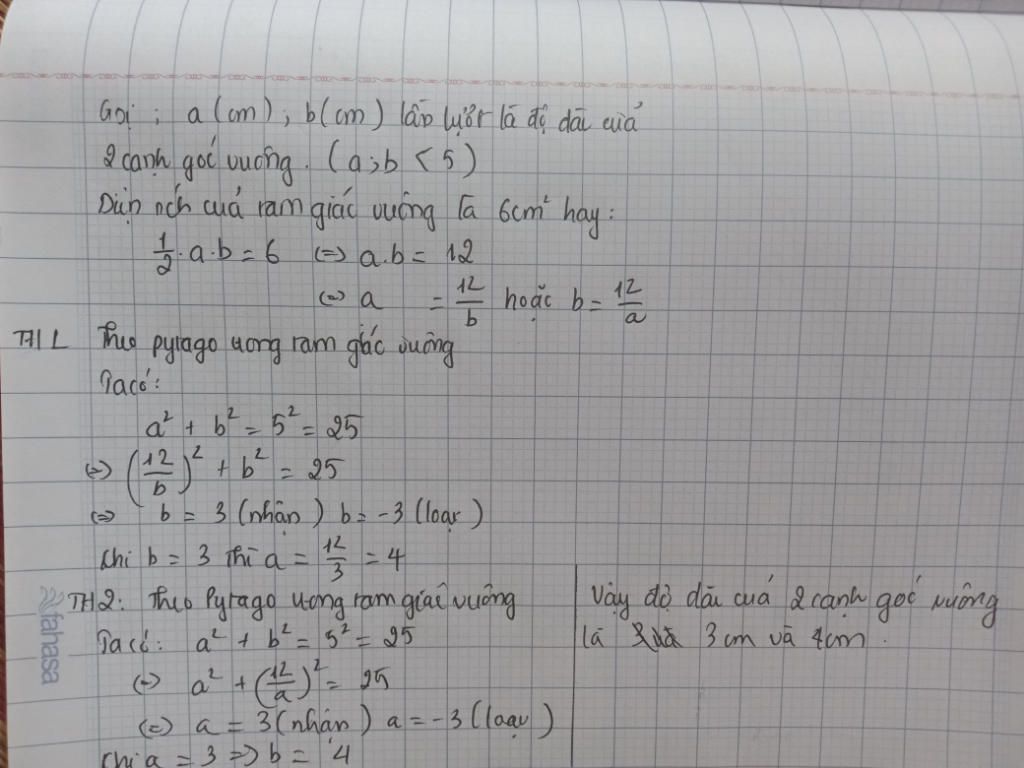 Gọi : a (cm) ; b (cm) lần lượt là độ dài của
2 cạnh góc vuông. (a;b < 5)
Diện tích của tam giác vuông là 6cm² hay:
1/2 . a . b = 6 ⇔ a.b = 12
⇔ a = 12/b hoặc b = 12/a
TH1 Theo pytago trong tam giác vuông
Ta có:
a² + b² = 5² = 25
⇔ (12/b)² + b² = 25
⇔ b = 3 (nhận) b = -3 (loại)
Khi b = 3 thì a = 12/3 = 4
TH2: Theo Pytago trong tam giác vuông
Ta có: a² + b² = 5² = 25
⇔ a² + (12/a)² = 25
⇔ a = 3 (nhận) a = -3 (loại)
Khi a = 3 => b = 4
Vậy độ dài của 2 cạnh góc vuông
là 3 cm và 4cm.
fahasa